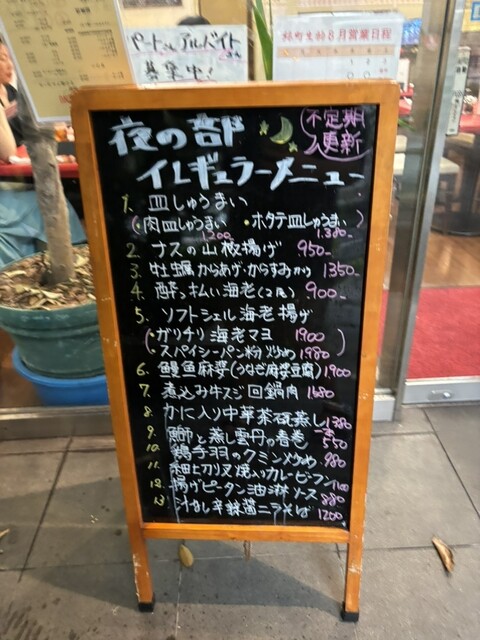 パートorアルバイト
募集中!
8月営業日程
夜の部
不定期
更新
イレギュラーメニュー
1. 皿しゅうまい
(・肉皿しゅうまい 1200 ・ホタテ皿しゅうまい 1.380-)
2. ナスの山椒揚げ 950-
3. 牡蠣からあげ・からすみかけ 1350-
4. 酔っ払い海老(2尾) 900-
5. ソフトシェル海老揚げ
(・ガリチリ海老マヨ 1900
・スパイシーパン粉炒め 1980)
6. 鰻魚麻婆(うなぎ麻婆豆腐) 1900
7. 煮込み牛スジ回鍋肉 1680
8. かに入り中華茶碗蒸し 1380
9. 鰤と蒸し雲丹の春巻 一本 550
10. 鶏手羽のクミン炒め 980
11. 細切り叉焼入りカレービーフン
12. 揚げピータン油淋ソース 880
13. 汁なし辛辣醤ニラそば 1200